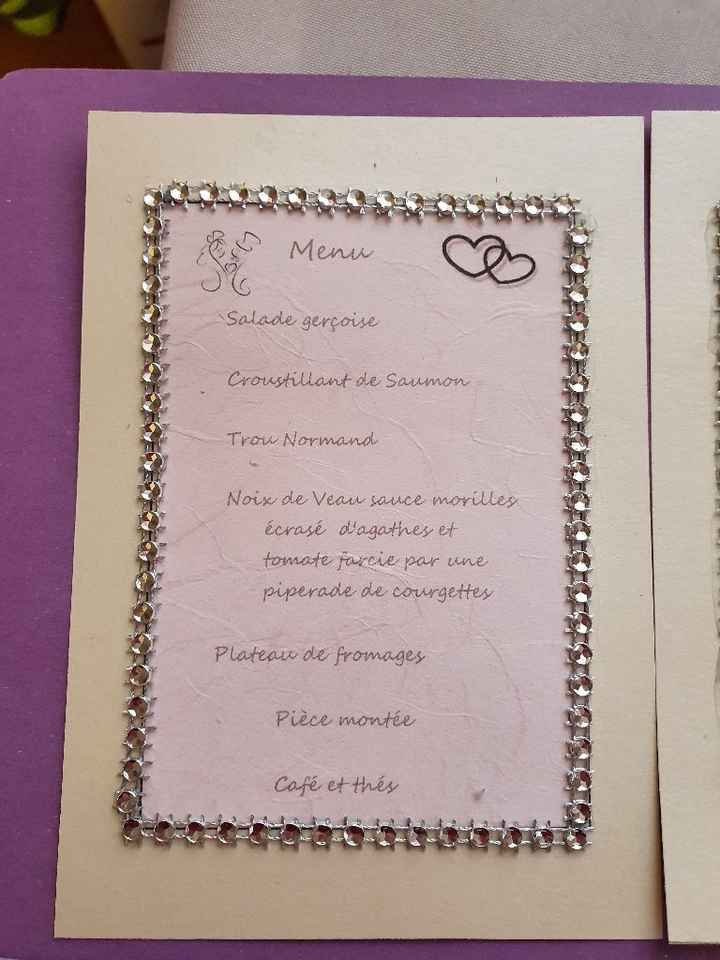 Menu
Salade gerçoise
Croustillant de Saumon
Trou Normand
Noix de Veau sauce morilles
écrasé d'agathes et
tomate farcie par une
piperade de courgettes
Plateau de fromages
Pièce montée
Café et thés